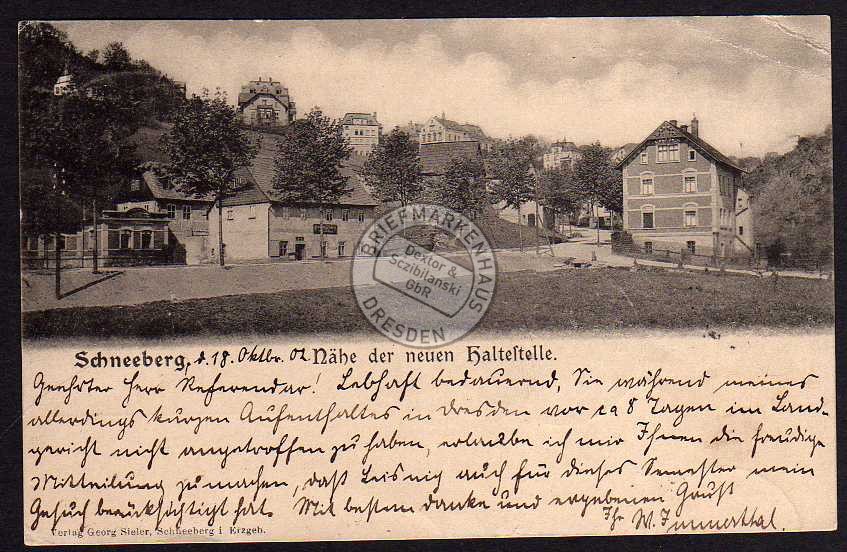 BRIEFMARKENHAUS
Dextor &
Sczibilanski
GbR
DRESDEN
Schneeberg, d. 18. Oktbr. 02 Nähe der neuen Haltestelle.
Geehrter Herr Referendar! Lebhaft bedauernd, Sie während meines
allerdings kurzen Aufenthaltes in Dresden vor ca 8 Tagen im Land-
gericht nicht angetroffen zu haben, erlaube ich mir Ihnen die freudige
Mitteilung zu machen, daß Leisnig auch für dieses Semester mein
Gesuch berücksichtigt hat. Mit bestem Danke und ergebenen Gruß
Ihr W. Immerthal.
Verlag Georg Sieler, Schneeberg i. Erzgeb.